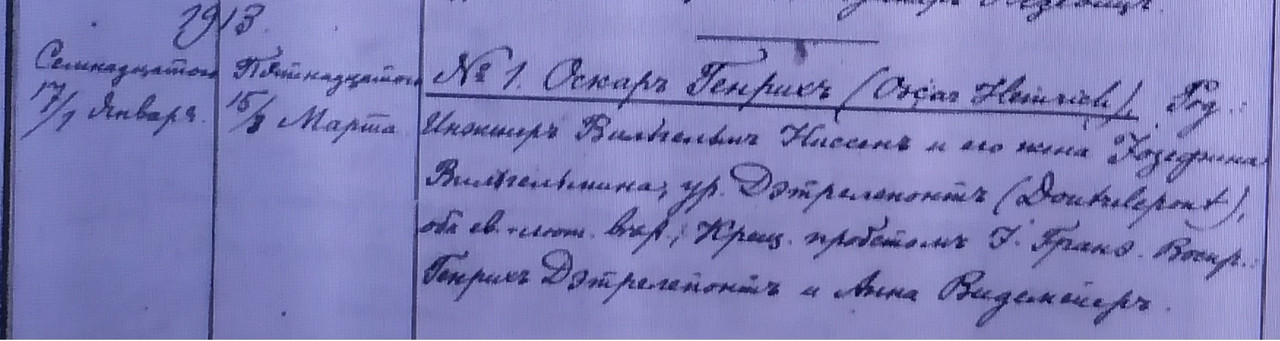 1913.
Семнадцатого
17/1 Января.
Пятнадцатого
15/3 Марта
№ 1. Оскаръ Генрихъ (Oscar Heinrich), Род.:
Инженеръ Вильгельмъ Ниссенъ и его жена Іозефина
Вильгельмина, ур. Дэтрелепонтъ (Doutrelepont),
оба ев.-лют. вѣр.; Крещ. пробстомъ І. Гранэ. Воспр.:
Генрихъ Дэтрелепонтъ и Анна Видемейеръ.